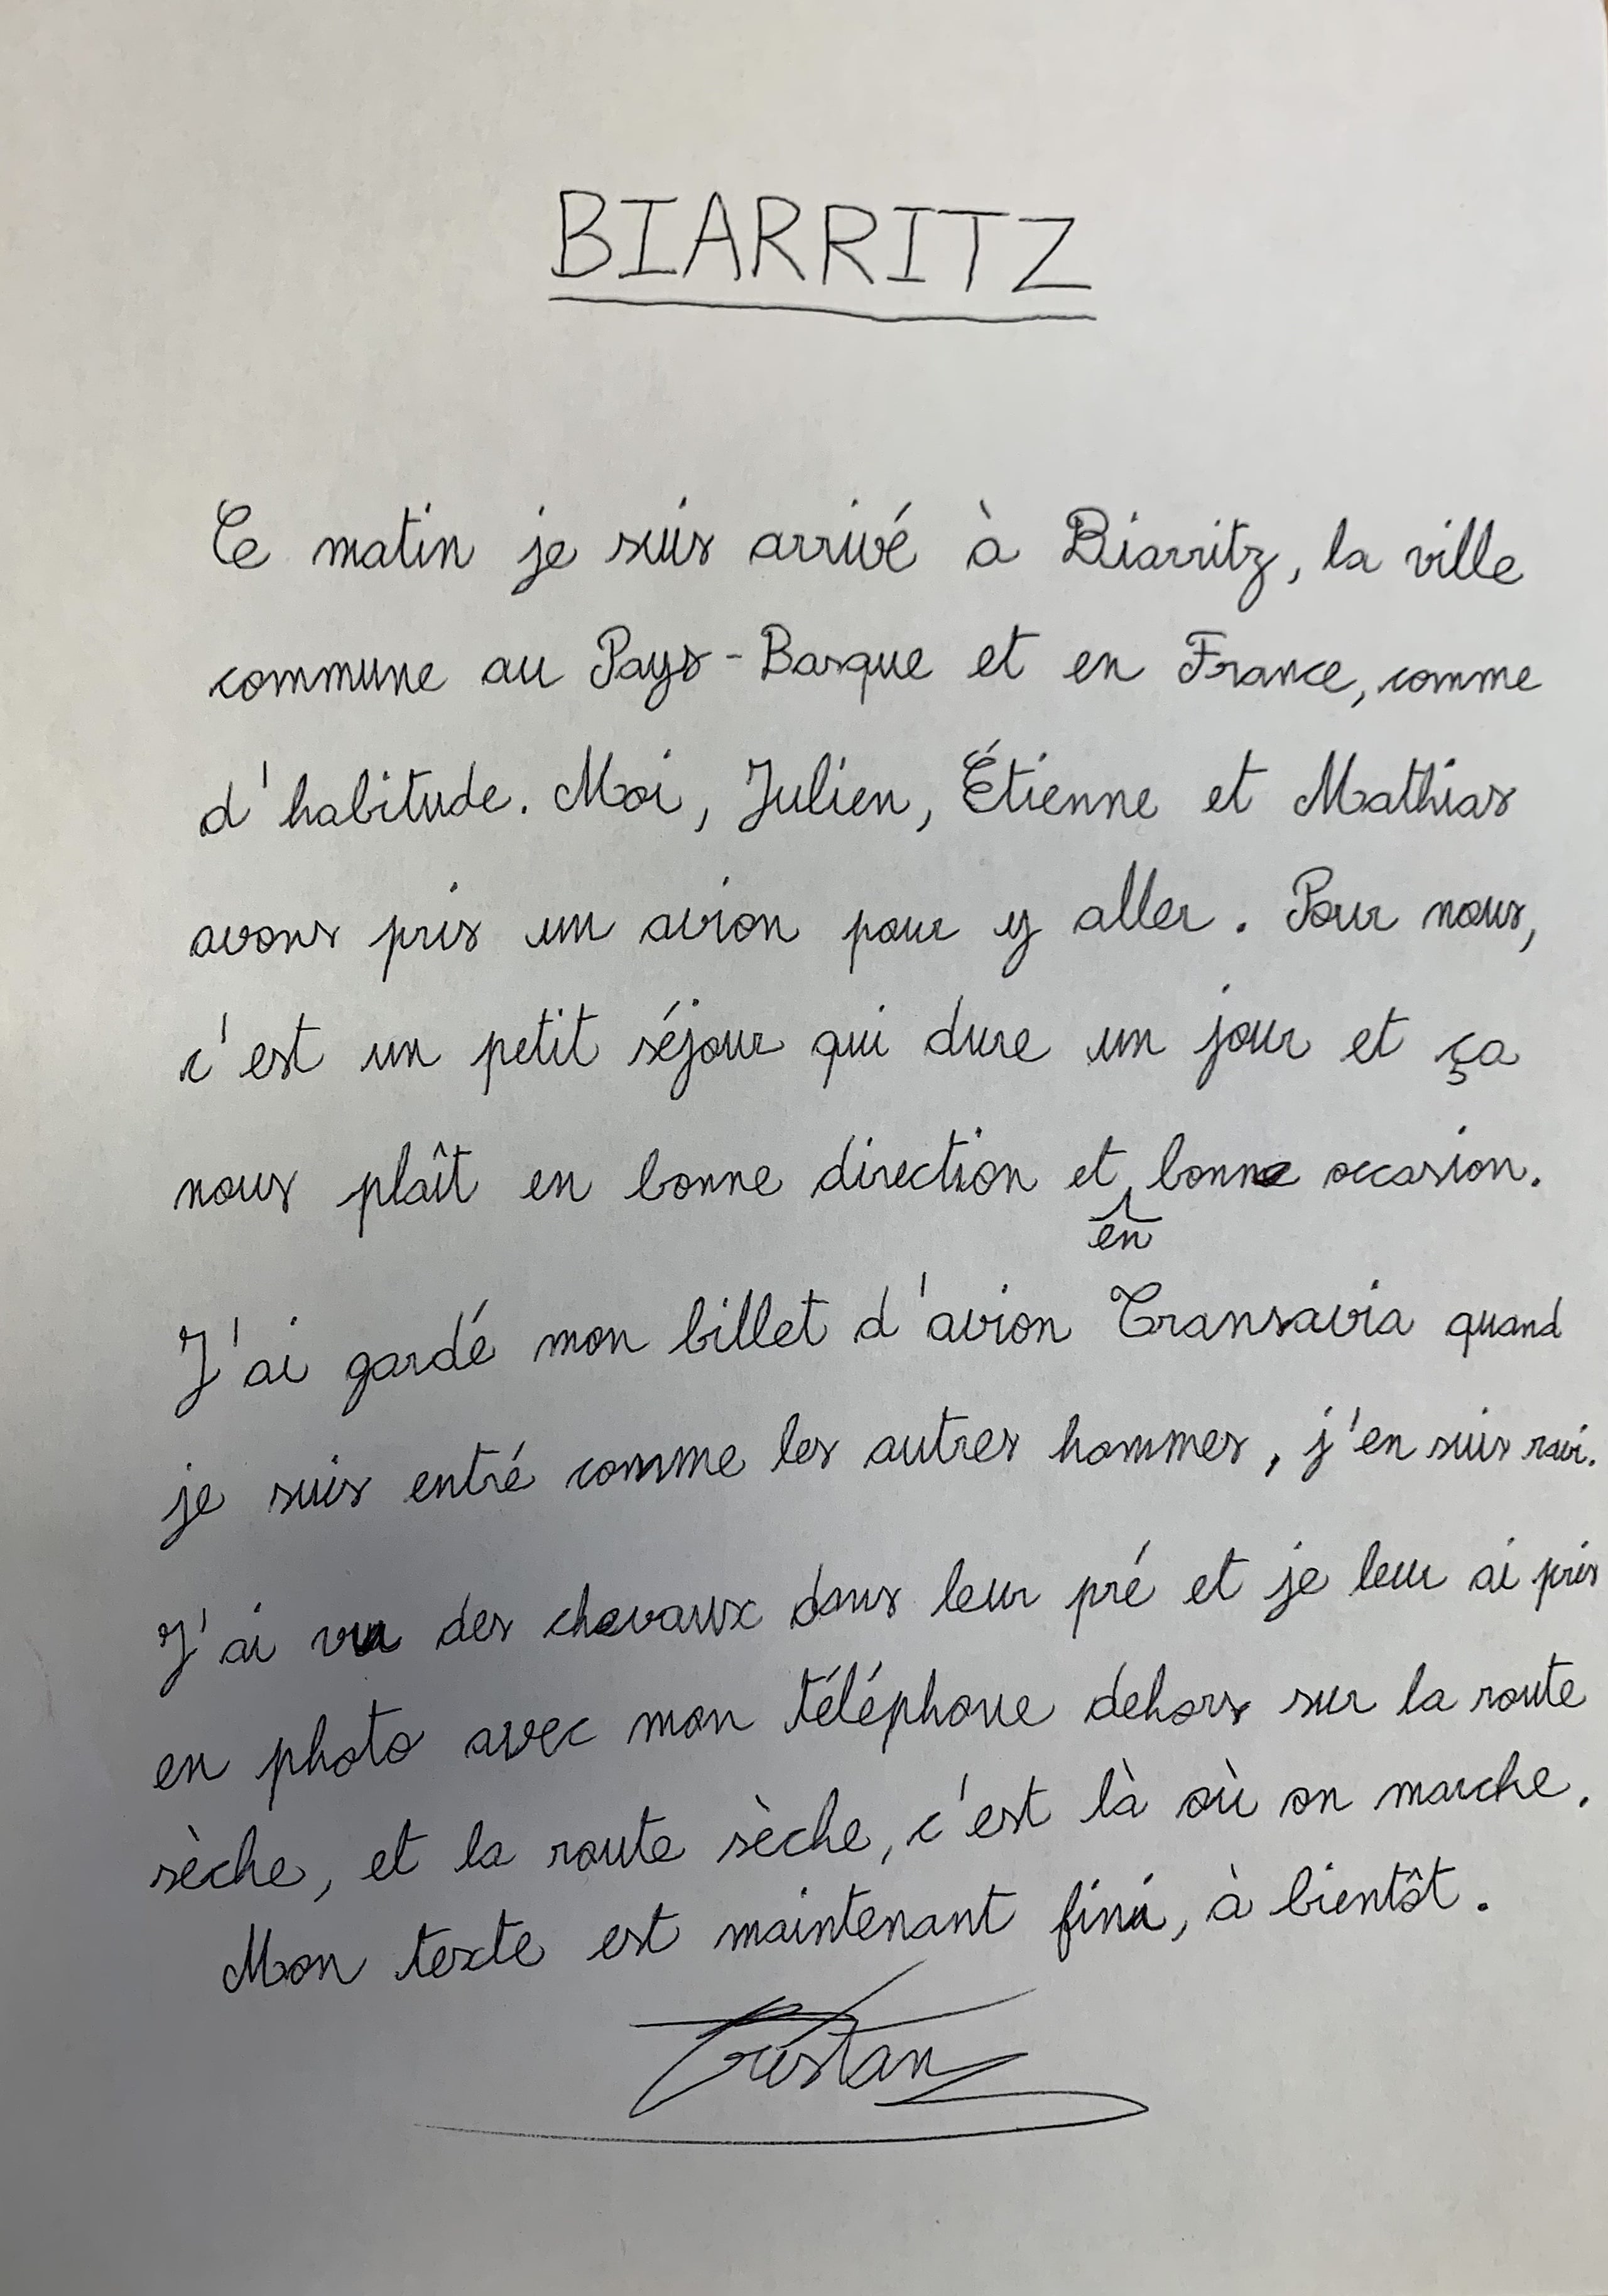 BIARRITZ
Ce matin je suis arrivé à Biarritz, la ville
commune au Pays-Basque et en France, comme
d'habitude. Moi, Julien, Étienne et Mathias
avons pris un avion pour y aller. Pour nous,
c'est un petit séjour qui dure un jour et ça
nous plaît en bonne direction et en bonne occasion.
J'ai gardé mon billet d'avion Transavia quand
je suis entré comme les autres hommes, j'en suis ravi.
J'ai vu des chevaux dans leur pré et je leur ai pris
en photo avec mon téléphone dehors sur la route
sèche, et la route sèche, c'est là où on marche.
Mon texte est maintenant fini, à bientôt.
Tristan